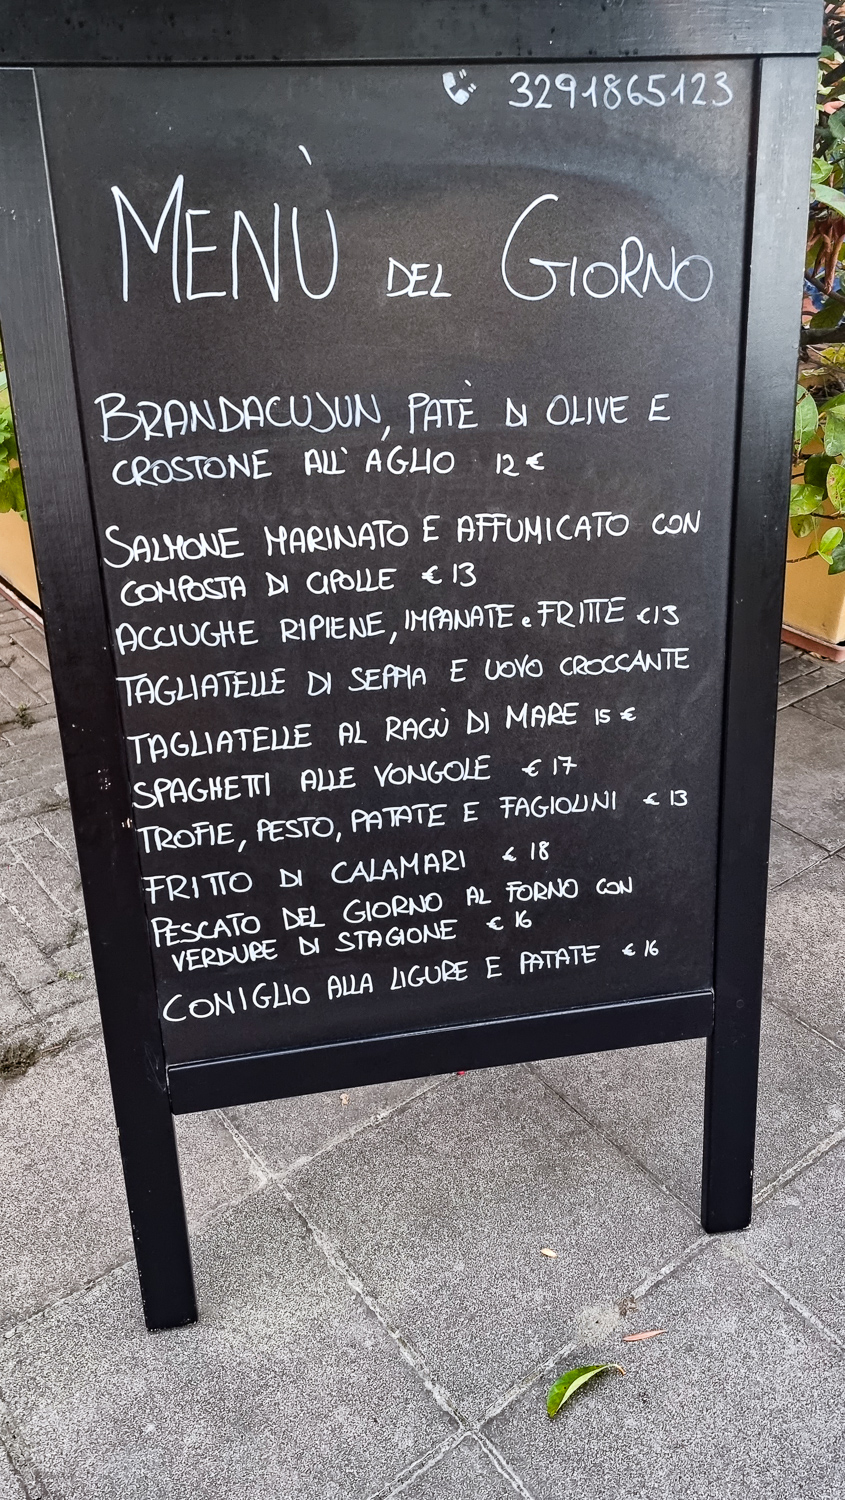 3291865123
MENÙ DEL GIORNO
BRANDACUJUN, PATÈ DI OLIVE E
CROSTONE ALL' AGLIO 12 €
SALMONE MARINATO E AFFUMICATO CON
COMPOSTA DI CIPOLLE € 13
ACCIUGHE RIPIENE, IMPANATE e FRITTE €13
TAGLIATELLE DI SEPPIA E UOVO CROCCANTE
TAGLIATELLE AL RAGÙ DI MARE 15 €
SPAGHETTI ALLE VONGOLE € 17
TROFIE, PESTO, PATATE E FAGIOLINI € 13
FRITTO DI CALAMARI € 18
PESCATO DEL GIORNO AL FORNO CON
VERDURE DI STAGIONE € 16
CONIGLIO ALLA LIGURE E PATATE € 16